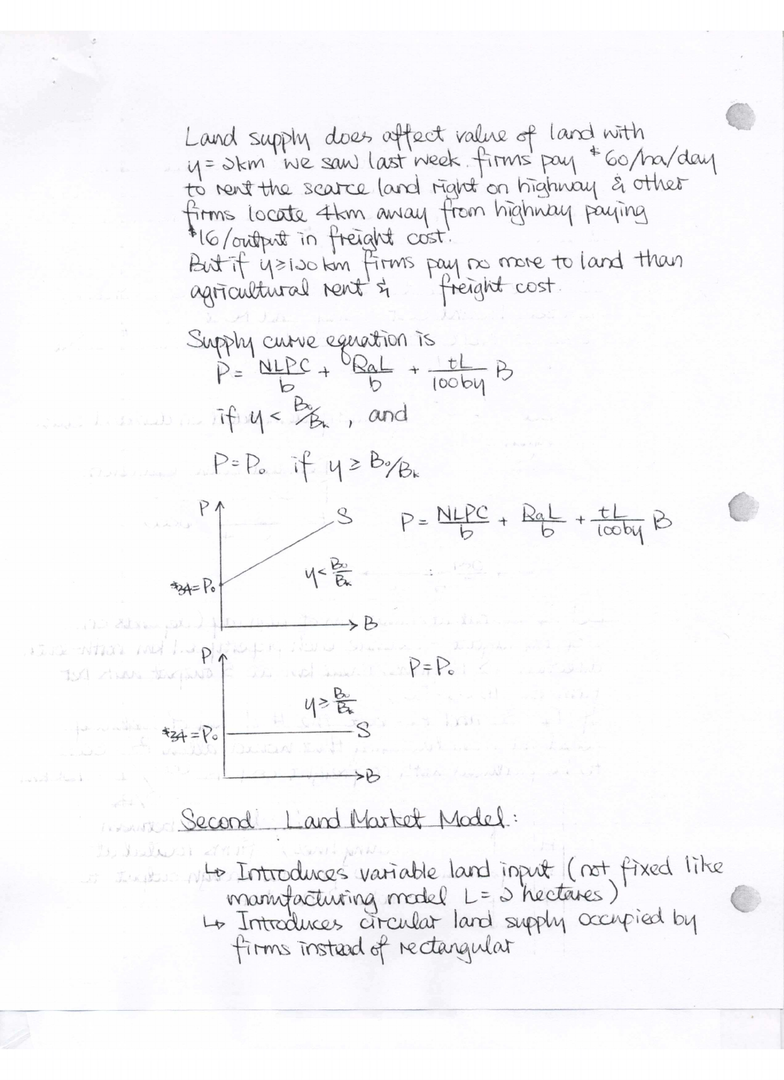 Land supply does affect value of land with
y = 2km we saw last week firms pay $60/ha/day
to rent the scarce land right on highway & other
firms locate 4km away from highway paying
$16/output in freight cost.
But if y≥120km firms pay no more to land than
agricultural rent & freight cost.
Supply curve equation is
P = NLPC/b + RaL/b + tL/100by B
if y < B₀/Bₖ , and
P=P₀ if y ≥ B₀/Bₖ
P S P = NLPC/b + RaL/b + tL/100by B
y < B₀/Bₖ
$34=P₀
B
P P=P₀
y ≥ B₀/Bₖ
$34=P₀ S
B
Second Land Market Model:
↳ Introduces variable land input (not fixed like
manufacturing model L= 2 hectares)
↳ Introduces circular land supply occupied by
firms instead of rectangular